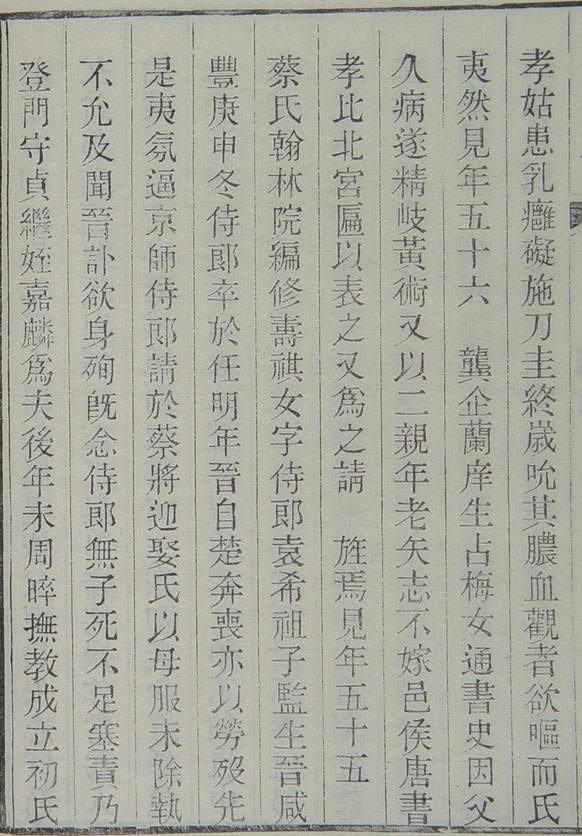 孝姑患乳癰礙施刀圭終歲吮其膿血觀者欲嘔而氏
夷然見年五十六　龔企蘭庠生占梅女通書史因父
久病遂精岐黃術又以二親年老矢志不嫁邑侯唐書
孝比北宮匾以表之又為之請　旌焉見年五十五
蔡氏翰林院編修壽祺女字侍郎袁希祖子監生晉咸
豐庚申冬侍郎卒於任明年晉自楚奔喪亦以勞歿先
是夷氛逼京師侍郎請於蔡將迎娶氏以母服未除執
不允及聞晉訃欲身殉旣念侍郎無子死不足塞責乃
登門守貞繼姪嘉麟爲夫後年未周晬撫教成立初氏